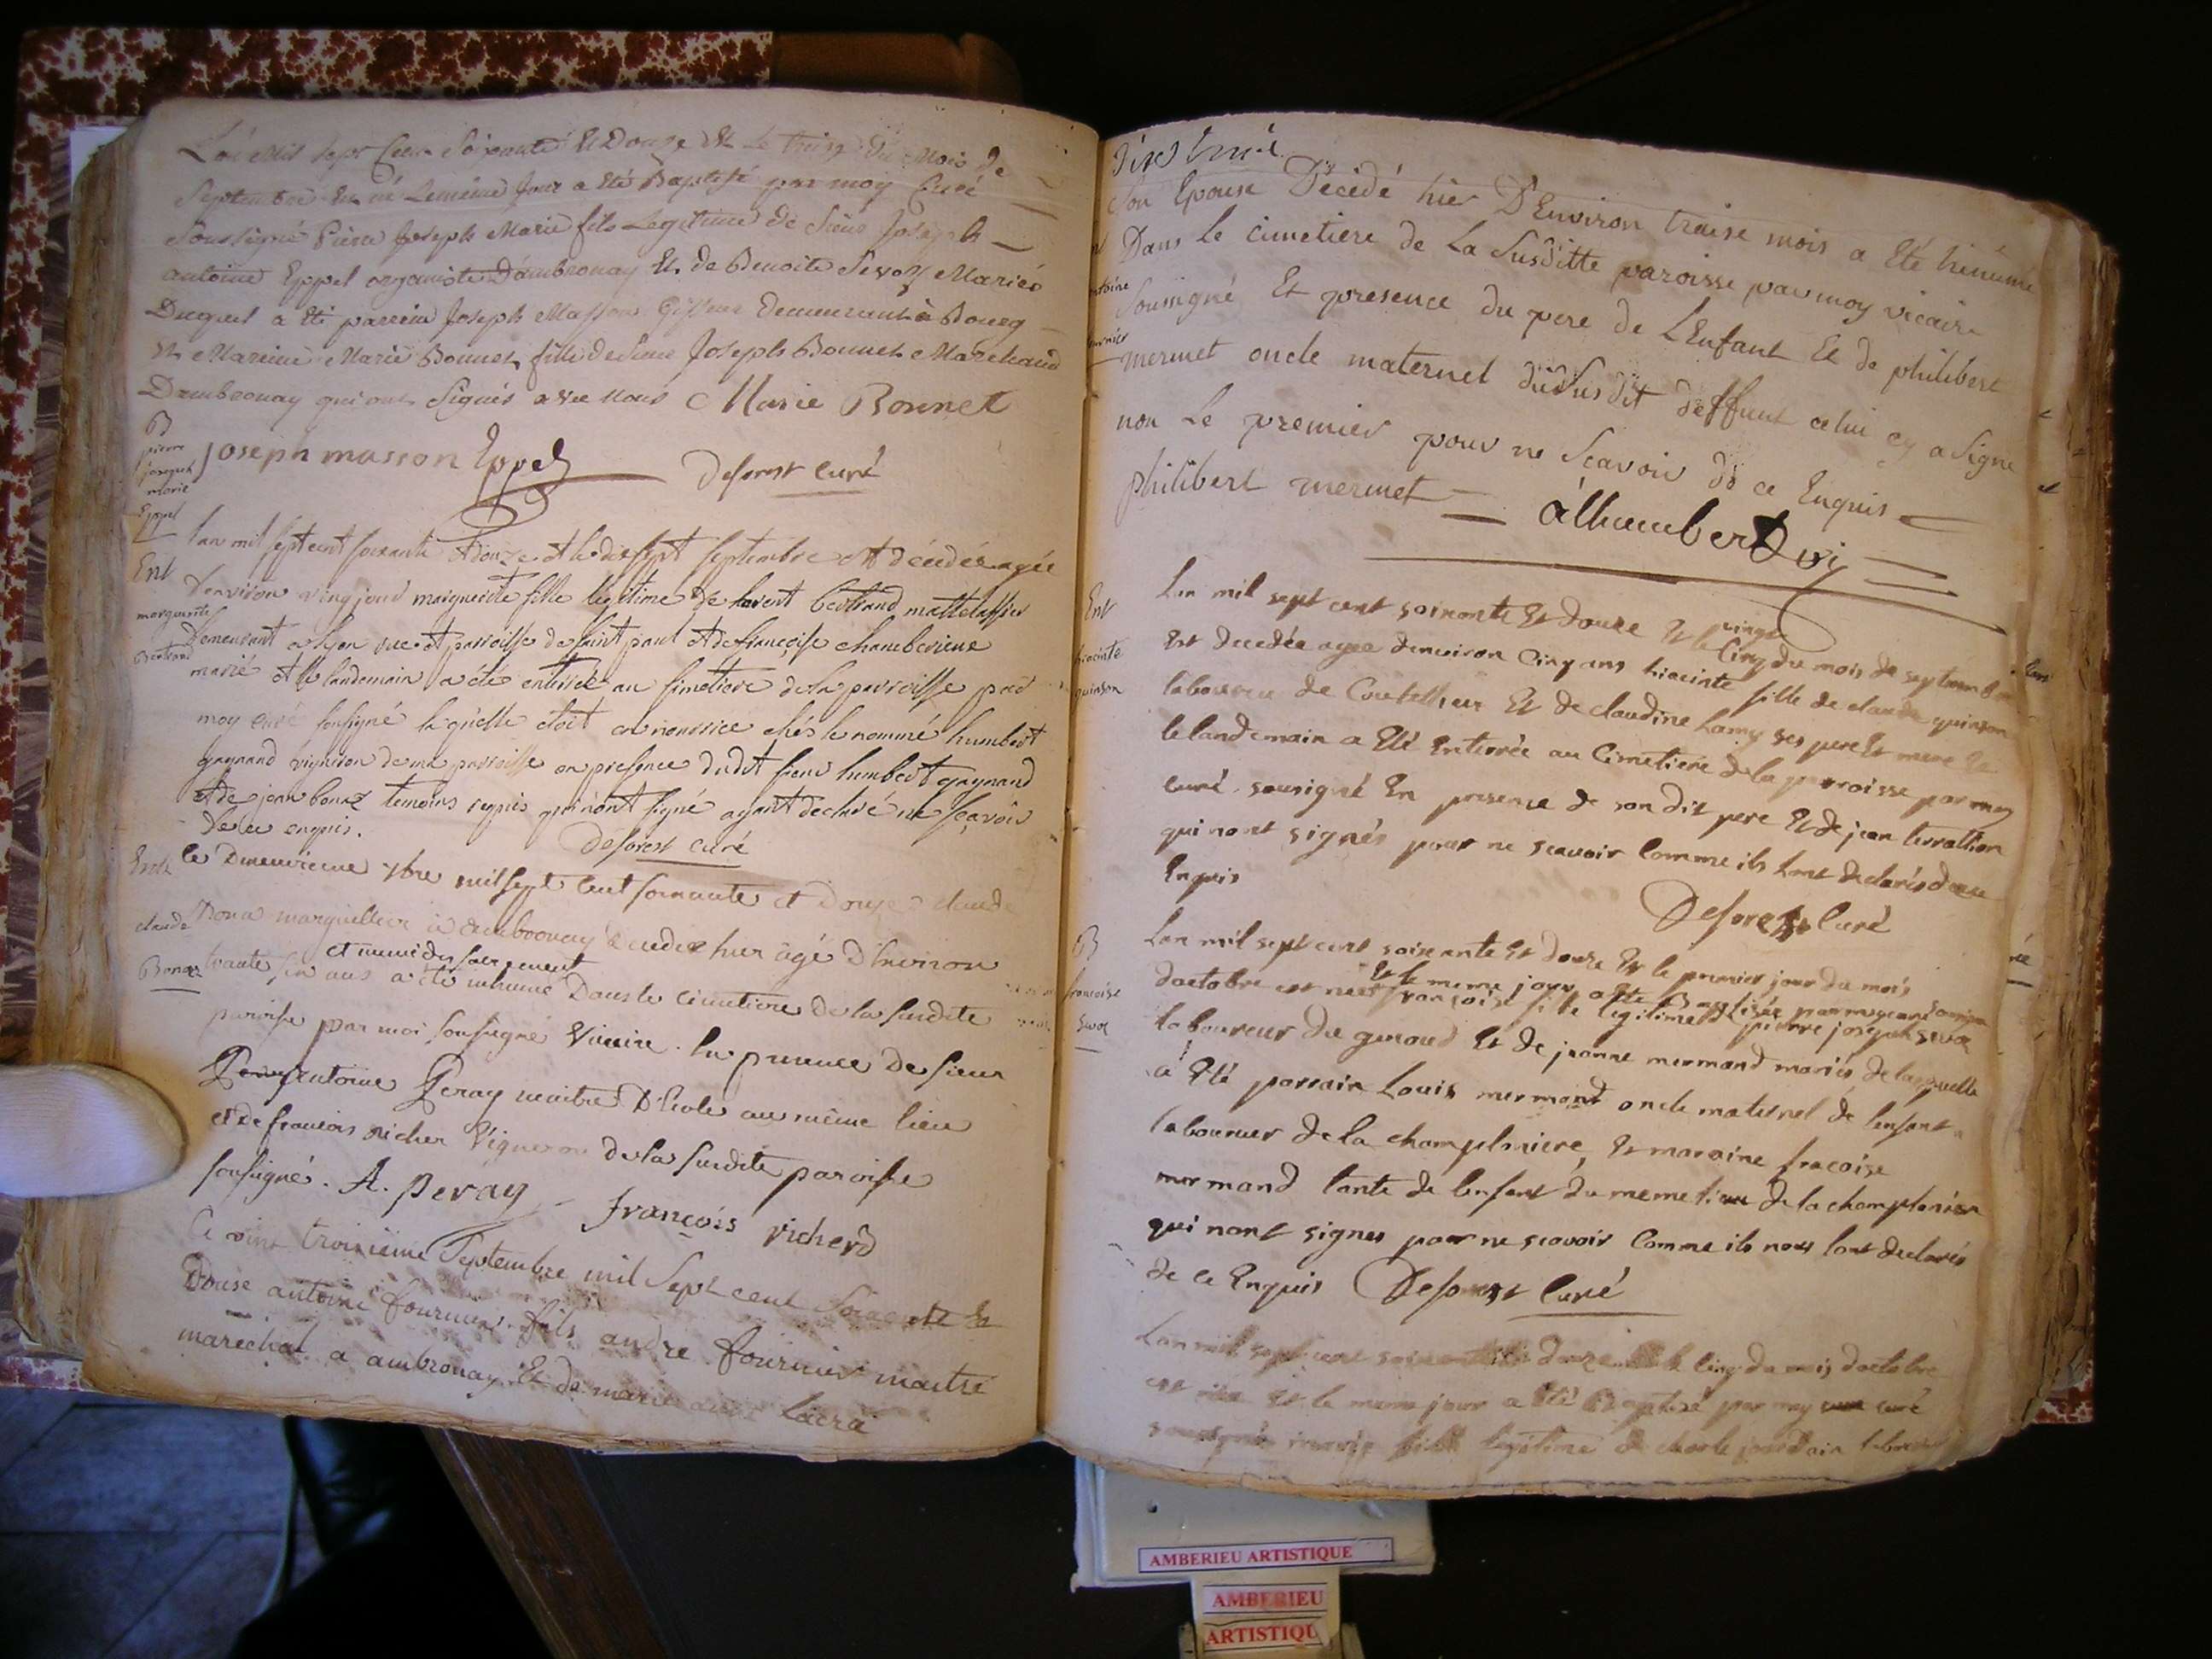 L'an Mil Sept Cent Soixante Et Douze Et Le treize du Mois de
Septembre Est né Lemême Jour a Eté Baptisé par moy Curé
Soussigné Pierre Joseph Marie fils Legitime de Sieur Joseph
antoine Eppel organiste D'ambronay Et de Benoite Sevoz Mariés
Duquel a Eté parrein Joseph Masson demeurant à Bourg
Et Mareine Marie Bonnet fille de Sieur Joseph Bonnet Marchand
Dambronay qui ont Signés avec Nous Marie Bonnet
B
pierre
joseph
marie
Eppel
joseph masson Eppel Deforest curé
Ent
marguerite
Bertrand
lan mil sept cent soixante et douze et le dixsept septembre est décédée agée
denviron vingt jours marguerite fille legitime de bertrand mattelassier
demeurant a lyon rue et parroisse de saint paul et de françoise
marié et le landemain a été enterrée au simetiere de la parroisse par
moy curé sousigné laquelle etoit en nourrice chés le nommé humbert
gagnand vigneron de ma parroisse en presence dudit sieur humbert gagnand
et de jean temoins requis qui n'ont signé ayant declaré ne sçavoir
de ce enquis.
Deforest curé
Ent
claude
Bonaz
le Dineuvieme 7bre mil sept cent soixante et Douze claude
Bona marguillier à ambronay décédé hier âgé D'Environ
et muni des sacrement
trante six ans a été inhumé Dans le cimetiere de la susdite
paroisse par moi soussigné Vicaire. En presence de sieur
antoine Peray maitre D'Ecole au même lieu
et de francois richer Vigneron de la susdite paroisse
sousigné. A. peray françois richerd
Ce vint troisieme Septembre mil Sept cent Soixante Et
Douse antoine fournier fils andre fournier maitre
marechal a ambronay Et de marie
Son Epouse Décédé hier D'Environ traise mois a Eté hinumé
Dans Le cimetiere de La Susditte paroisse par moy vicaire
Soussigné Et presence du pere de L'Enfant Et de philibert
mermet oncle maternel du Susdit deffunt celui cy a Signé
non Le premier pour ne Scavoir de ce Enquis
philibert mermet
Ent
hiacinte
quinson
Lan mil sept cent soixante Et douze Et le vingt
Cinq du mois de septembre
Est decedée agée denviron Cinq ans hiacinte fille de claude quinson
laboureur de Coutelieux Et de claudine Lamy ses pere Et mere Et
le landemain a Eté Enterrée au Cimetiere de la parroisse par moy
curé sousigné En presence de son dit pere Et de jean
qui nont signés pour ne scavoir Comme ils lont declarés de ce
Enquis
Deforest Curé
B
francoise
Sevoz
Lan mil sept cent soixante Et douze Et le premier jour du mois
Et le meme jour a Eté Baptisée par moy curé sousigné
doctobre est née françoise fille legitime de pierre joseph sevoz
laboureur du genoud Et de jeanne mermand mariés de laquelle
a Eté parrain Louis mermand oncle maternel de lenfant
laboureur de la champloniere, Et maraine fracoise
mermand tante de lenfant du meme lieu de la champloniere
qui nont signes pour ne scavoir Comme ils nous lont declarés
de ce Enquis Deforest Curé
Lan mil sept cent soixante Et douze Et le cinq du mois doctobre
est née Et le meme jour a Eté Baptisé par moy curé
sousigné marie fille legitime de
AMBERIEU ARTISTIQUE
AMBERIEU
ARTISTIQU